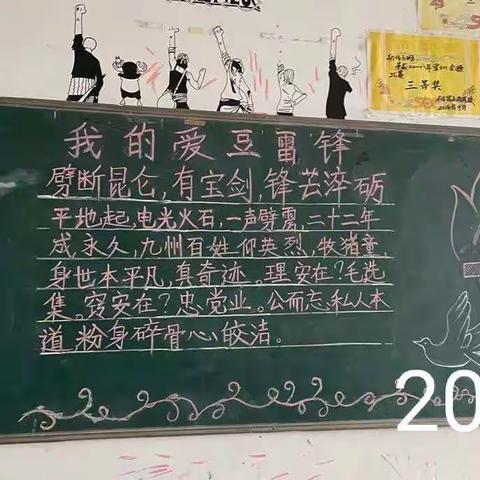 我的爱豆雷锋
劈断昆仑，有宝剑，锋芒淬砺
平地起，电光火石，一声劈雳，二十二年
成永久，九州百姓仰英烈，牧猪童，
身世本平凡，真奇迹。理安在？毛选
集。窍安在？忠党业。公而忘私人本
道，粉身碎骨心皎洁。
三等奖
20